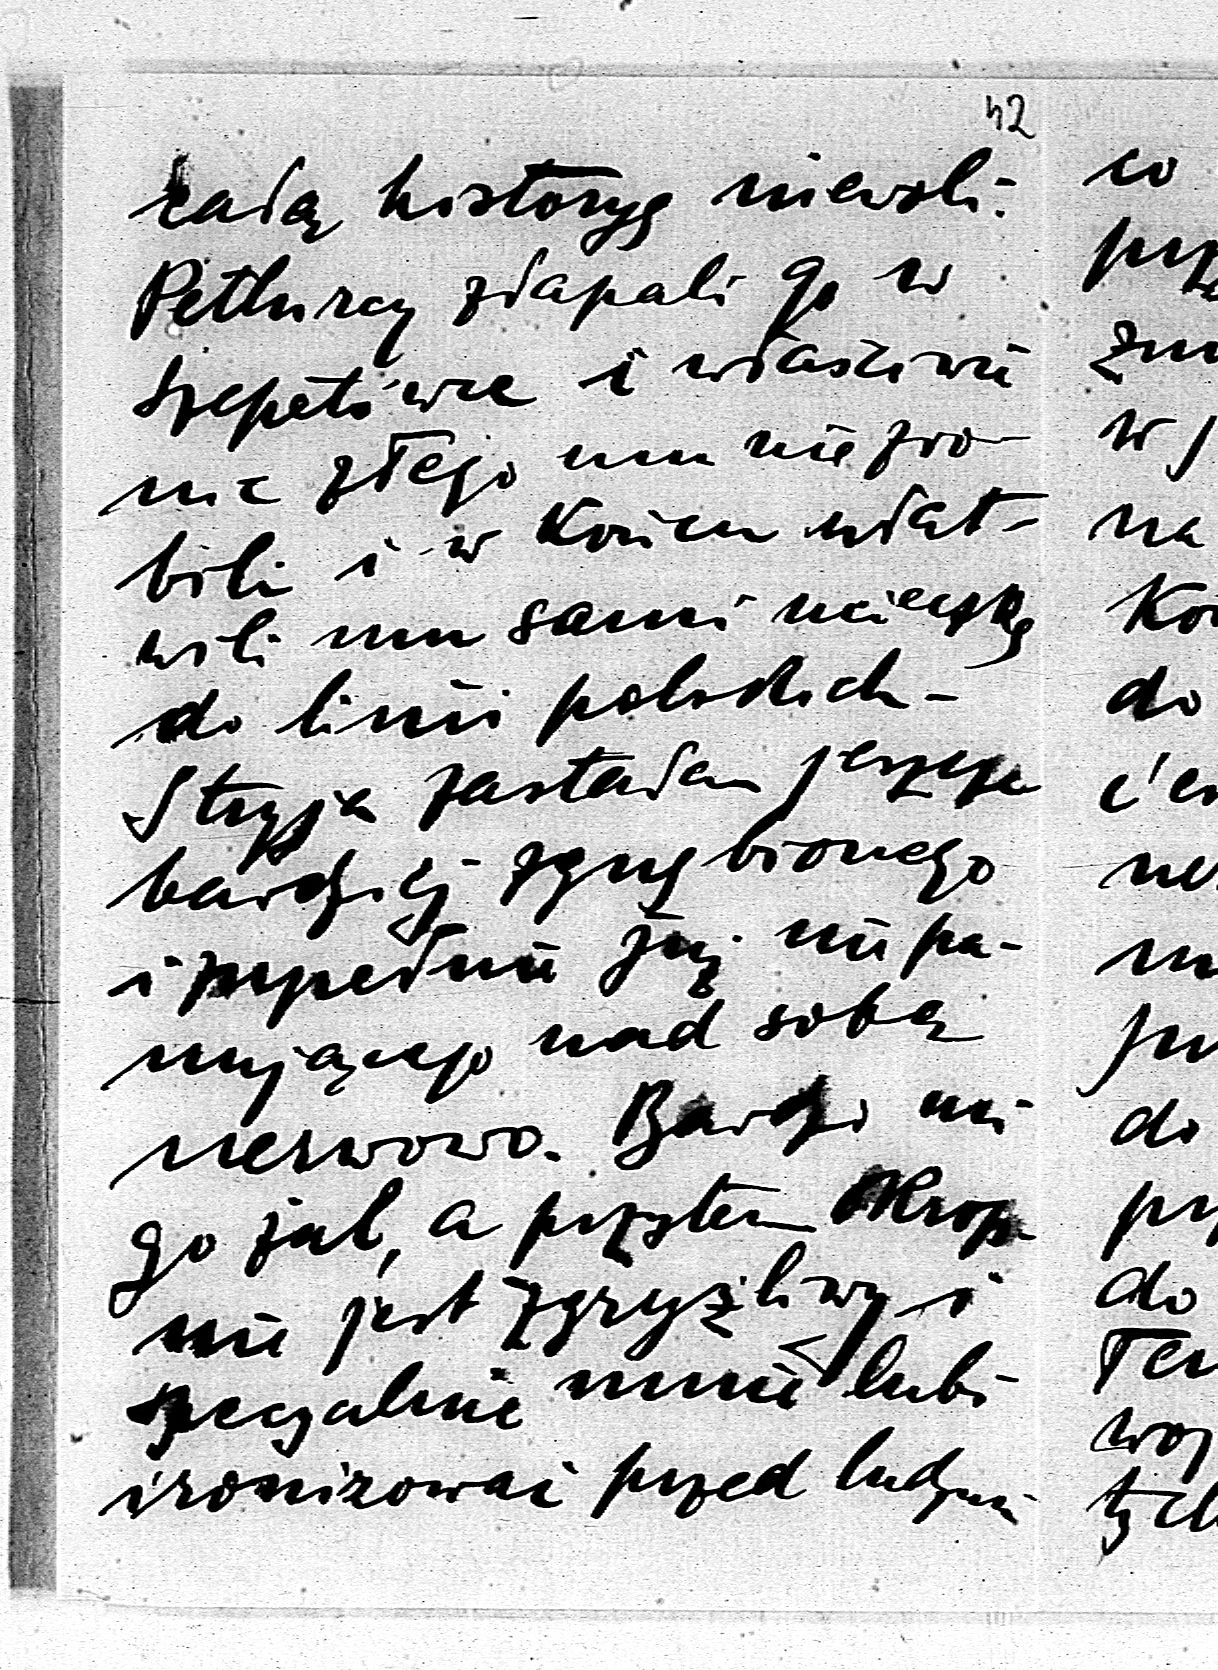 42
całą historyę niewoli.
Petlurcy złapali go w
Szepetówce i właściwie
nic złego mu nie zro-
bili i w końcu ułat-
wili mu sami ucieczkę
do linii polskich –
Stryja zastałam jeszcze
bardziej zgnębionego
i zupełnie już nie pa-
nującego nad sobą
nerwowo. Bardzo mi
go żal, a przytem okrop-
nie jest zgryźliwy i
specjalnie mnie lubi
ironizować przed ludźmi
co
do
na
do
do